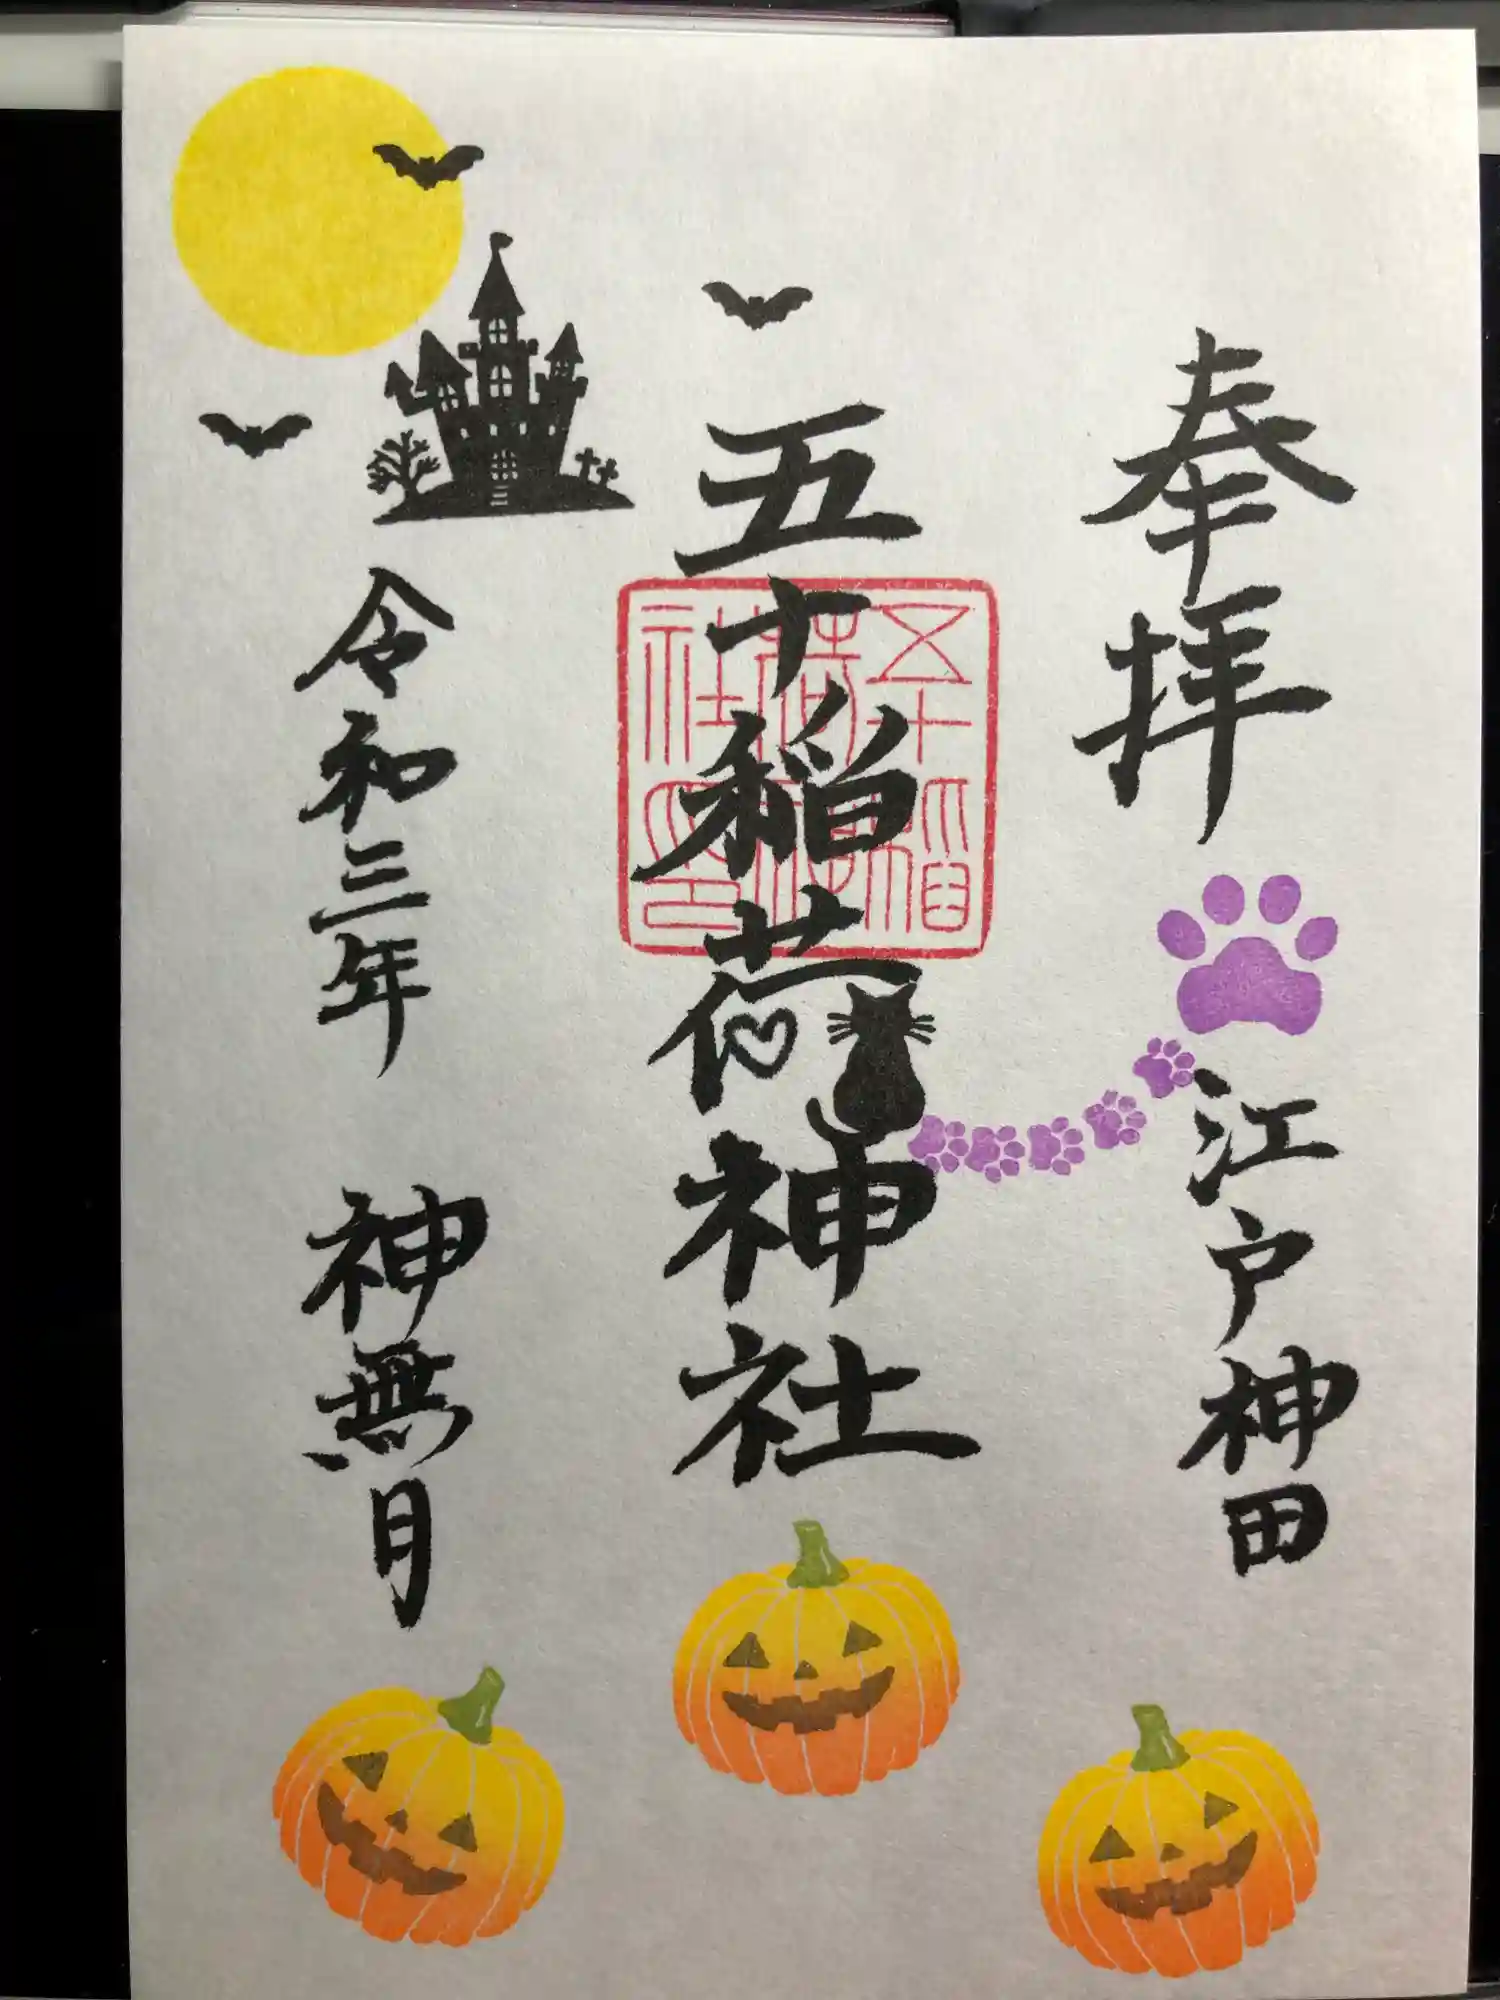 奉拝
江戸神田
五十稲荷神社
五十稲荷神社印
令和三年 神無月